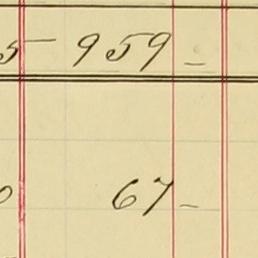 5 959 -
0 67 -